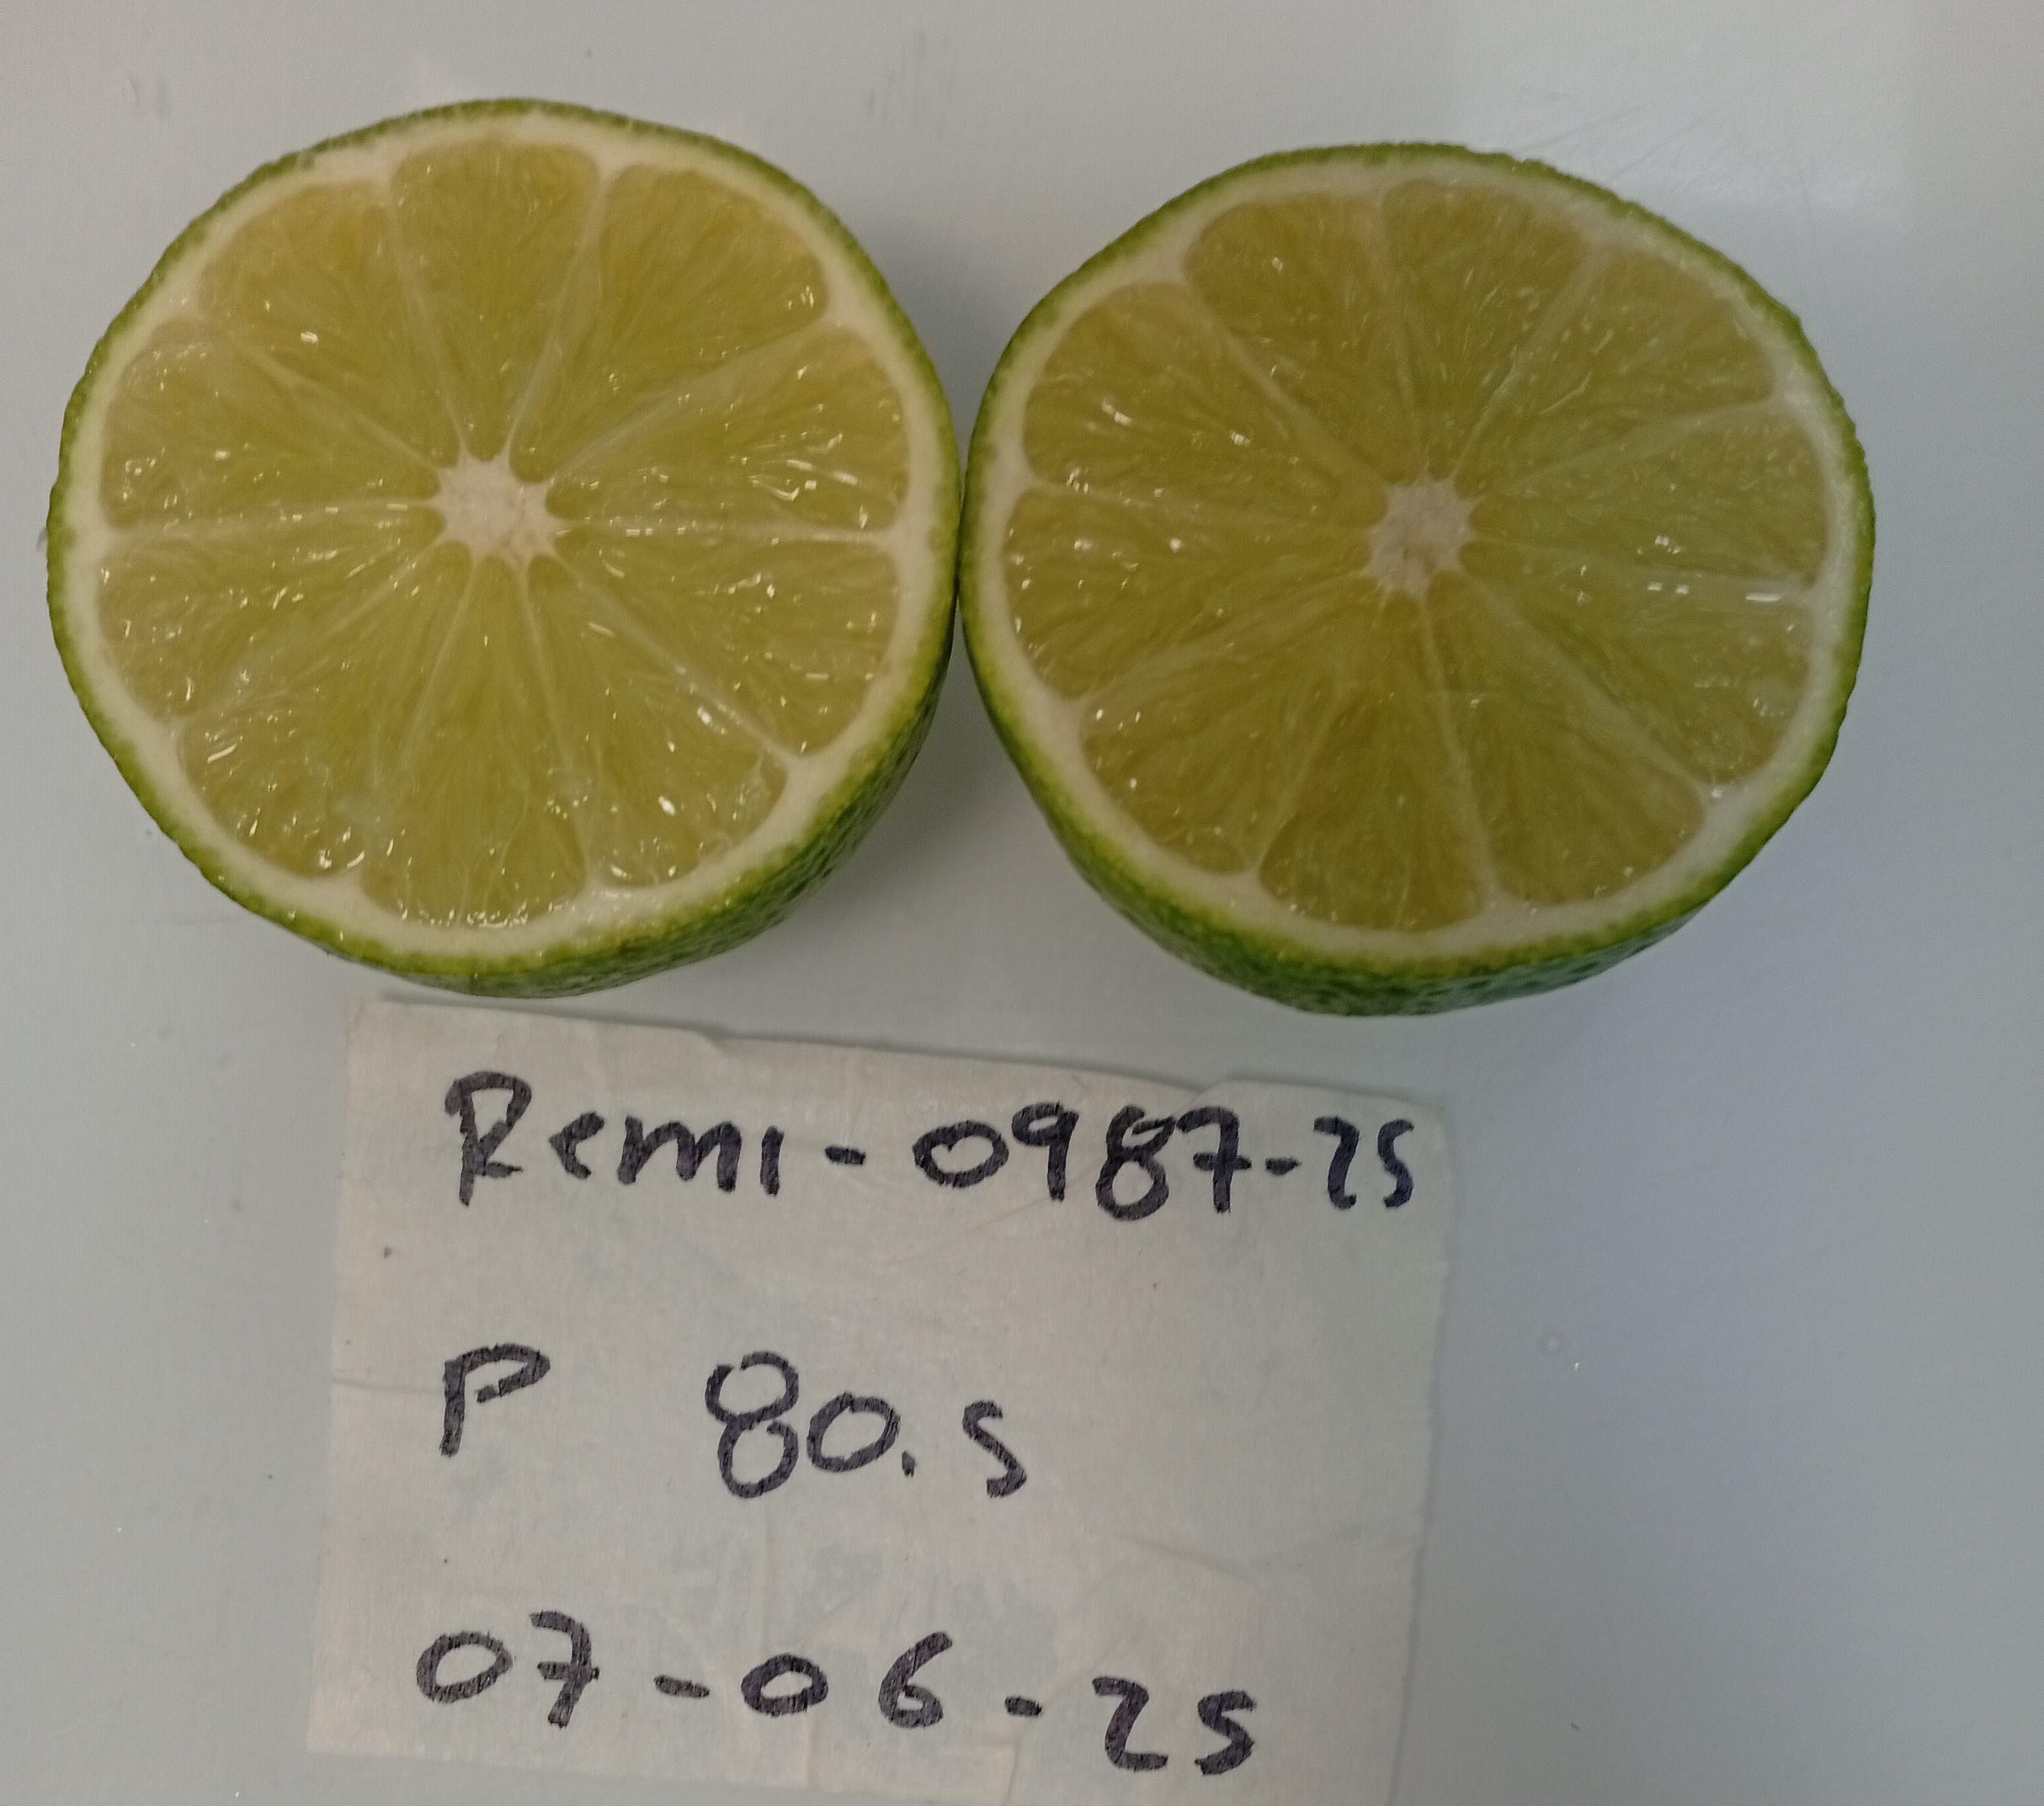 Remi-0987-25
P 80.5
07-06-25